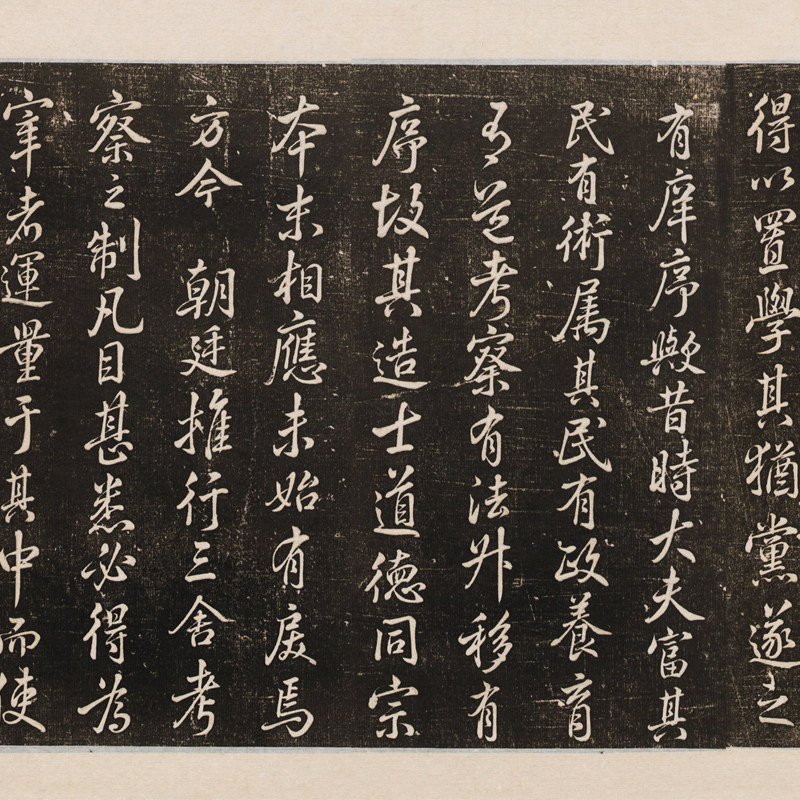 得以置學其猶黨遂之
有庠序歟昔時大夫富其
民有術属其民有政養育
有道考察有法升移有
序故其造士道德同宗
本末相應未始有戾焉
方今 朝廷推行三舍考
察之制凡目甚悉必得為
宰者運量于其中而使